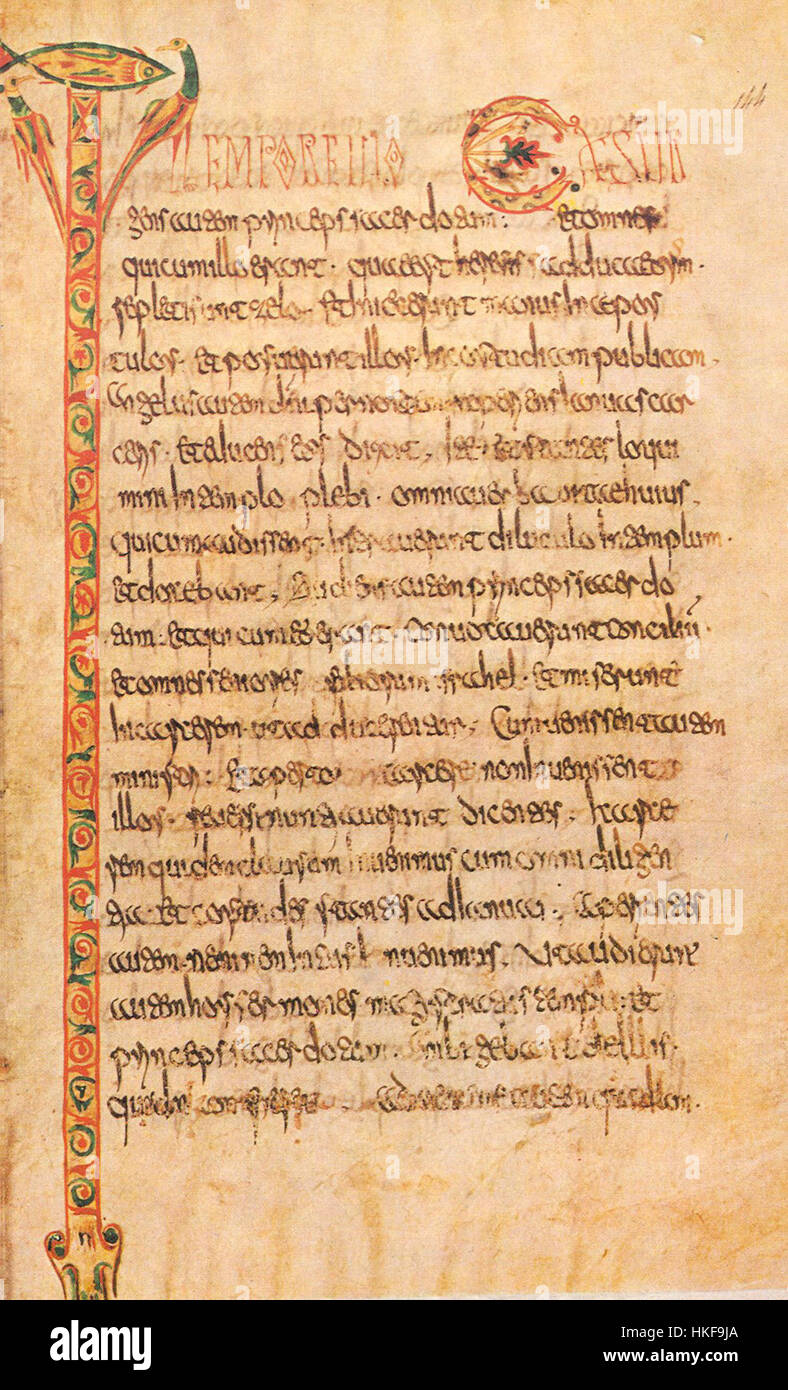 IN TEMPORE ILLO EXSUR
144
gens autem princeps sacerdotum. Et omnes
qui cum illo erant. que est heresis sadducaeorum.
repleti sunt zelo. Et iniecerunt manus in apos
tulos. et posuerunt illos in custudiam publicam.
Angelus autem dni per noctem aperiens ianuas car
ceris. et educens eos dixit. Ite et stantes loqui
mini in templo plebi. omnia uerba uitae huius.
qui cum audissent. intrauerunt diluculo in templum.
et docebant. Audiens autem princeps sacerdo
tum. et qui cum eo erant. conuocauerunt conciliu.
et omnes seniores filiorum israhel. et miserunt
in carcerem. ut adducerentur. Cum uenissent autem
ministri. et aperto carcere non inuenissent
illos. reuersi nunciauerunt dicentes. carce
rem quidem clausum inuenimus cum omni diligen
tia. et custodes stantes ad ianuas. Aperientes
autem neminem intus inuenimus. Ut audierunt
autem hos sermones magistratus templi. et
princeps sacerdotum. ambigebant de illis.
quidnam fieret. Adueniens autem quidam.
alamy
alamy stock photo
HKF9JA
www.alamy.com